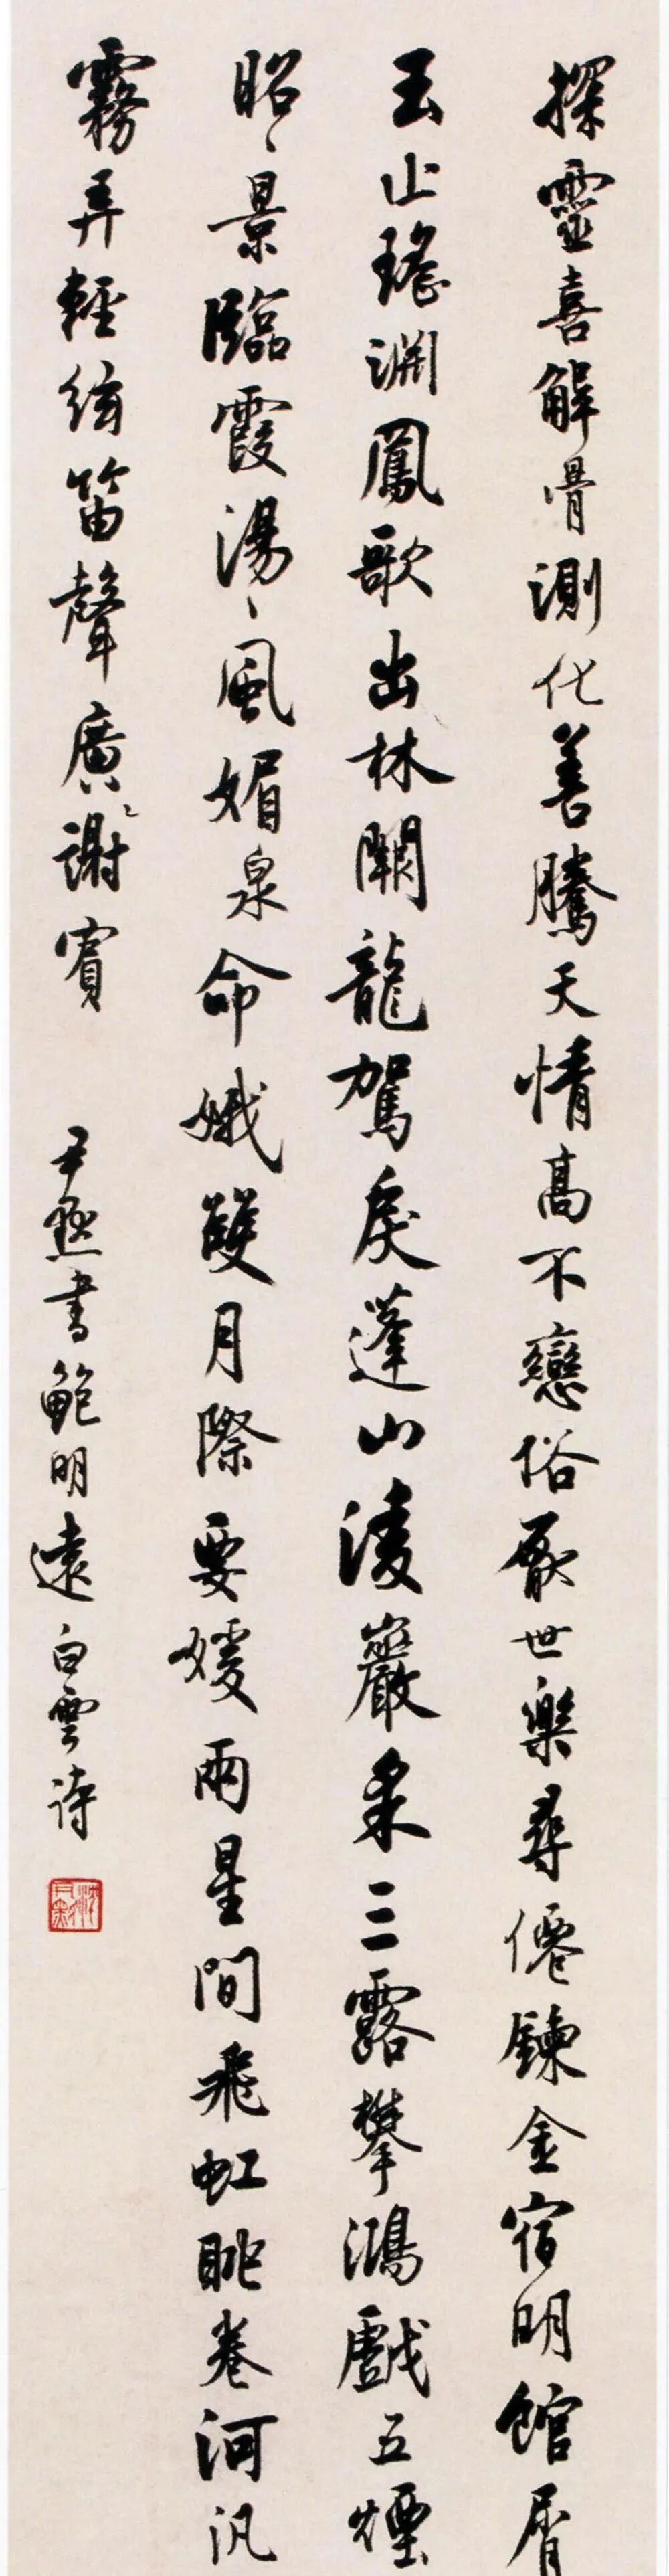 探靈喜解骨測化善騰天情高不戀俗厭世樂尋僊鍊金宿明館屑
玉止瑤淵鳳歌出林闕龍駕戾蓬山淩巖采三露攀鴻戲五煙
昭〻景臨霞湯〻風媚泉命娥雙月際要媛兩星間飛虹眺卷河汎
霧弄輕絃笛聲廣謝賓
尹默書鮑明遠白雲詩